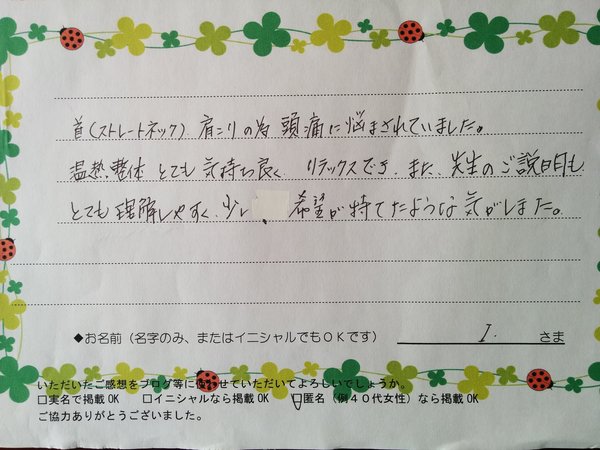 首（ストレートネック）肩こりの為 頭痛に悩まされていました。
温熱、整体 とても気持ち良く、リラックスでき、また、先生のご説明も
とても理解しやすく、少し、希望が持てたような気がしました。
◆お名前（名字のみ、またはイニシャルでもＯＫです） I. さま
いただいたご感想をブログ等に使わせていただいてよろしいでしょうか。
□実名で掲載OK □イニシャルなら掲載OK □匿名（例４０代女性）なら掲載OK
ご協力ありがとうございました。